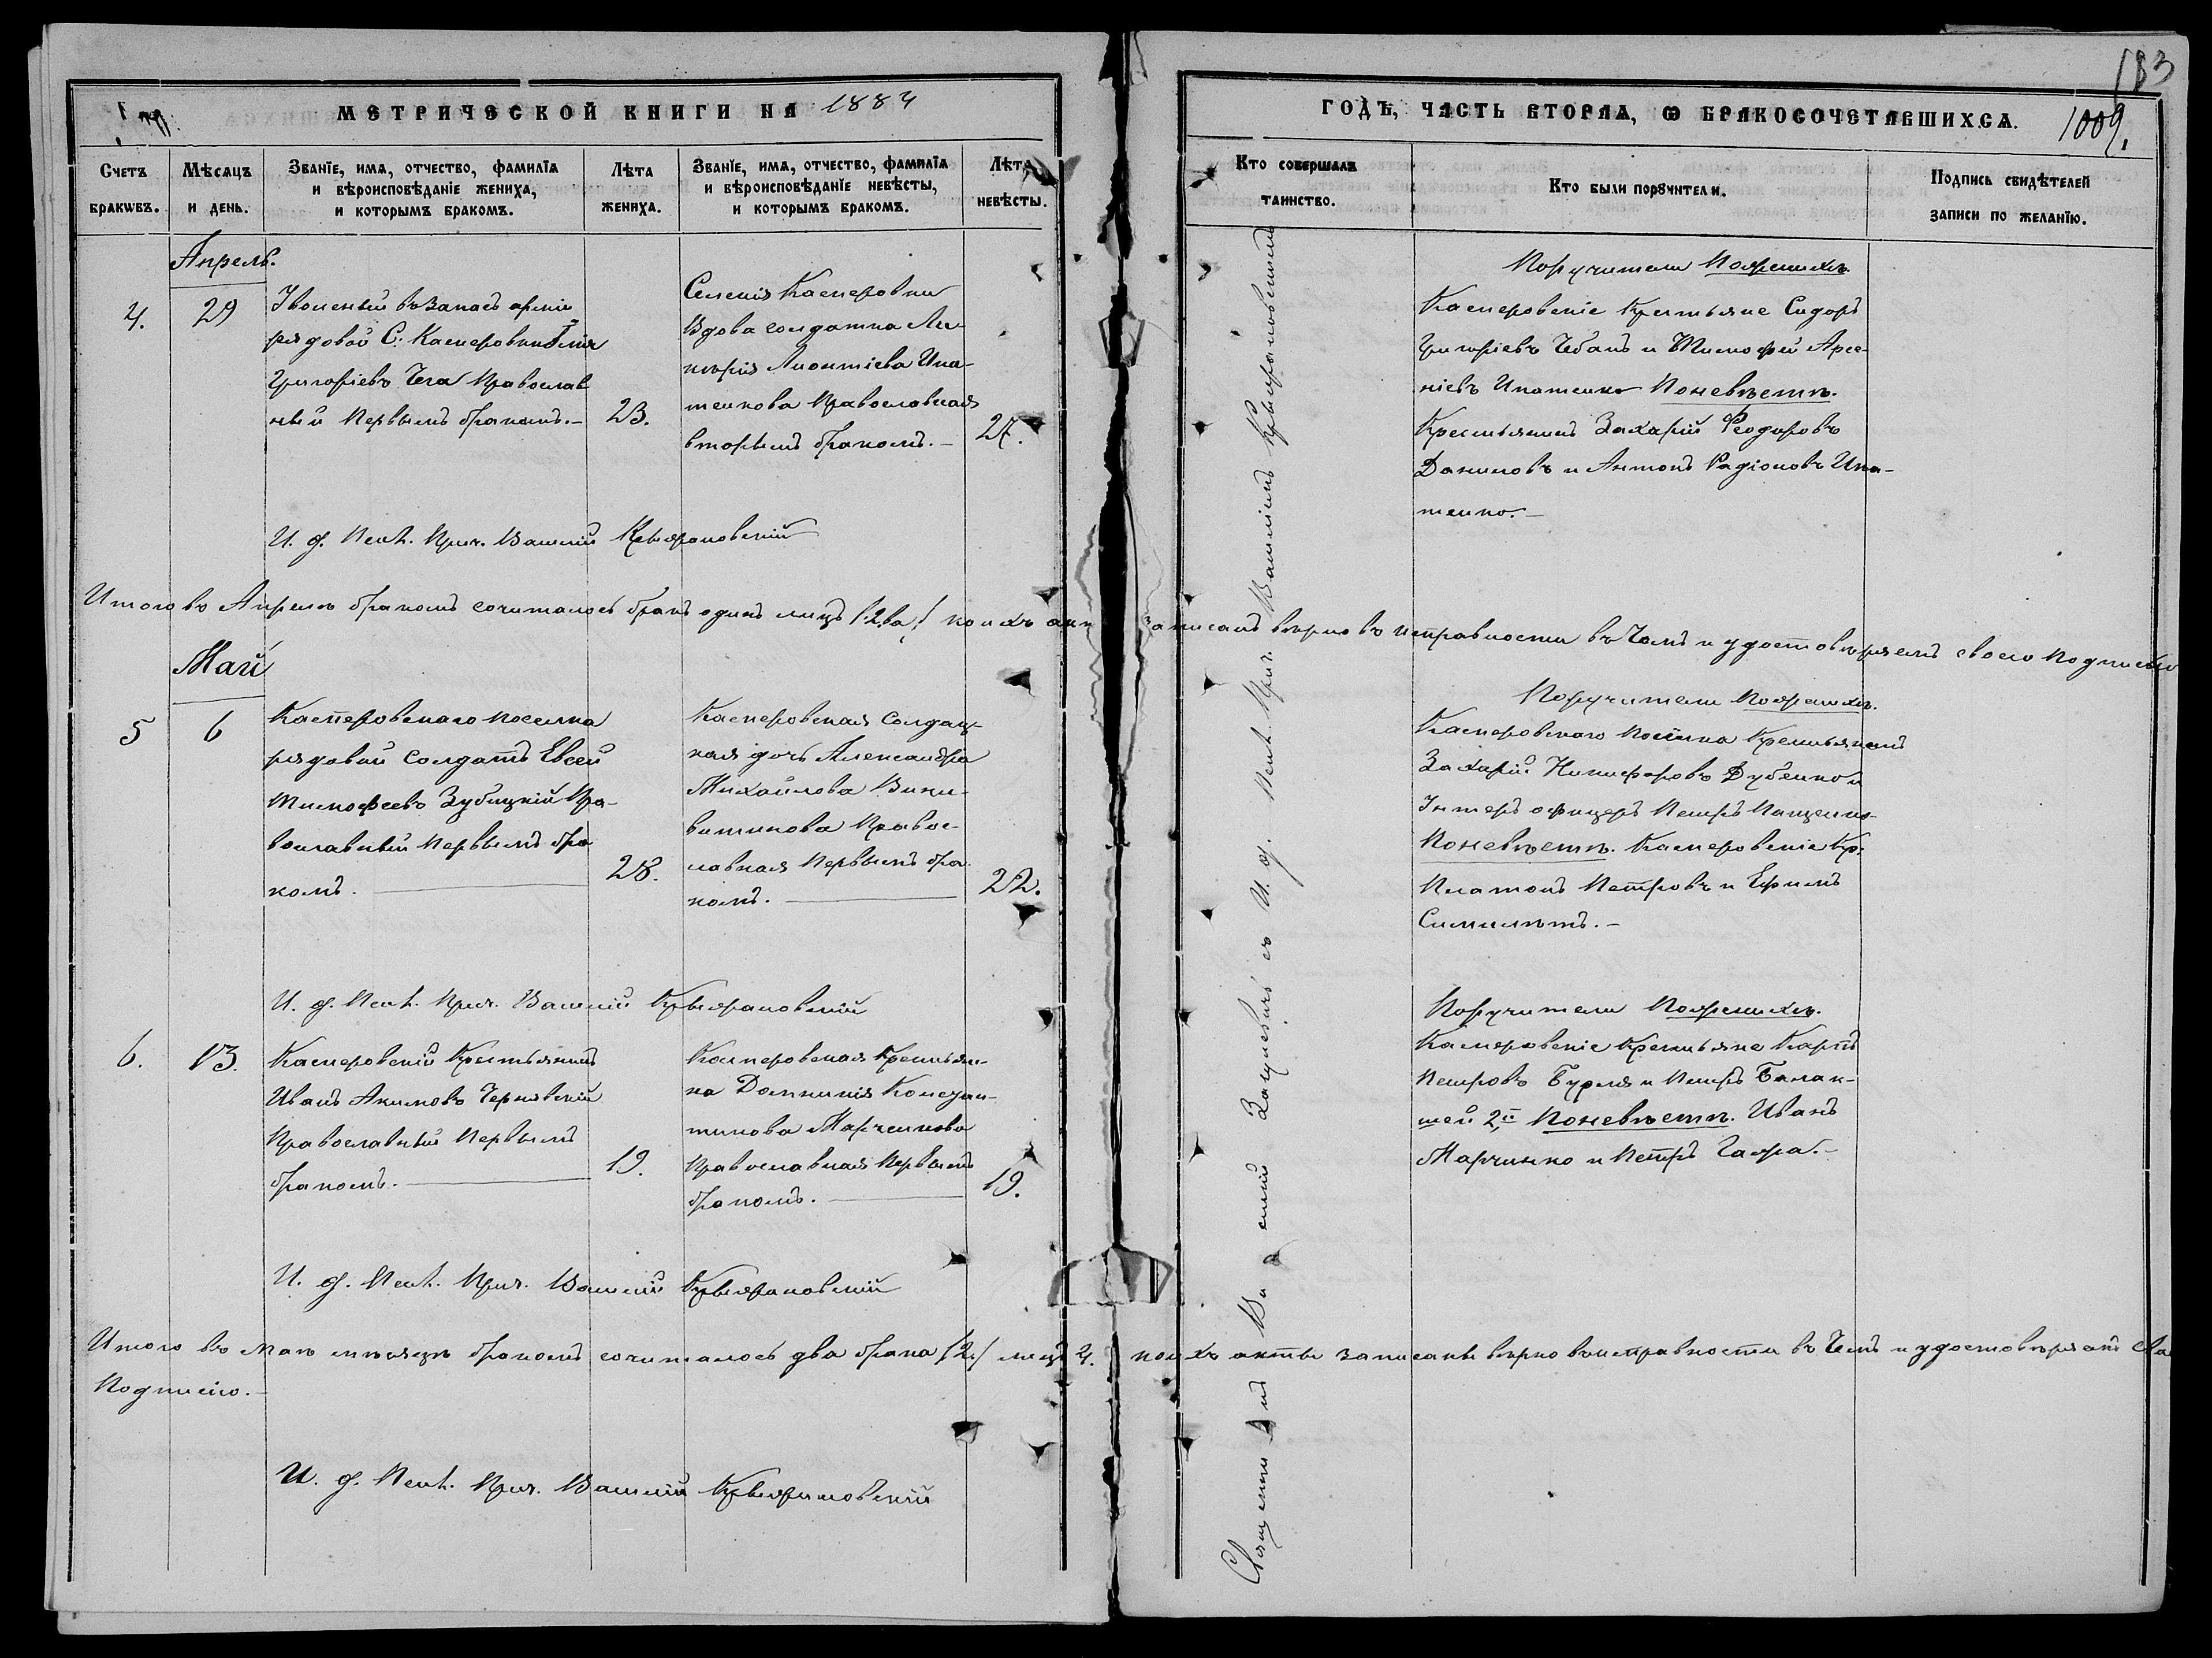 183
МЕТРИЧЕСКОЙ КНИГИ НА 1884
ГОДЪ, ЧАСТЬ ВТОРАЯ, Ѡ БРАКОСОЧЕТАВШИХСЯ.
1009.
Счетъ бракѡвъ.
Мѣсяцъ и день.
Званїе, имя, отчество, фамилїя
и вѣроисповѣданїе жениха,
и которымъ бракомъ.
Лѣта жениха.
Званїе, имя, отчество, фамилїя
и вѣроисповѣданїе невѣсты,
и которымъ бракомъ.
Лѣта невѣсты.
Кто совершалъ таинство.
Кто были поручители.
Подпись свидѣтелей
записи по желанїю.
Апрель.
4.
29
Уволеный въ запасъ арміи
рядовой С. Касперовки
Григоріевъ Чега Православ
ный Первымъ бракомъ.—
23.
Селенія Касперовки
Вдова солдатка Ли-
керія Леонтіева Ипа-
тенкова Православная
вторымъ бракомъ.—
24.
Поручители По женихѣ
Касперовскіе Крестьяне Сидоръ
Григоріевъ Чебанъ и Тимофей Арсе-
ніевъ Ипатенко По невѣстѣ.
Крестьянинъ Захарій Феодоровъ
Даниловъ и Антонъ Радіоновъ Ипа-
тенко.—
И. д. Псал. Прич. Василій
Итого въ Апрелѣ бракомъ сочиталось бракъ одинъ лицъ (2ва) коихъ
записанъ вѣрно въ исправности въ Чемъ и удостовѣряемъ своею подписью
Май
5
6
Касперовскаго поселка
рядовой солдатъ Евсей
Тимофеевъ Зубицкій Пра-
вославный Первымъ бра
комъ.
28.
Касперовская Солдат-
кая дочь Александра
Михайлова
Правос-
лавная Первымъ бра
комъ.
22.
Поручители По женихѣ.
Касперовскаго Поселка Крестьянинъ
Захарій Никифоровъ Дубенко и
Унтеръ офицеръ Петръ Пащенко
По невѣстѣ. Касперовскіе Кр:
Платонъ Петровъ и Ефимъ
И. д. Псал. Прич. Василій
6.
13.
Касперовскій Крестьянинъ
Иванъ Акимовъ Чернявскій
Православный Первымъ
бракомъ.
19.
Касперовская Крестьян-
ка Домникія Констан-
тинова Марченкова
Православная Первымъ
бракомъ.
19.
Поручители По женихѣ.
Касперовскіе Крестьяне Карпъ
Петровъ Бурля и Петръ Балак-
шей 2й По невѣстѣ. Иванъ
Марченко и Петръ
И. д. Псал. Прич. Василій
Итого въ Маѣ мѣсяцѣ бракомъ сочиталось два брака (2) лицъ 4. коихъ акты записаны вѣрно въ исправности въ Чемъ и удостовѣряемъ
Подписью.—
И. д. Псал. Прич. Василій
Священникъ Василій съ И. д. Псал. Прич. Василіемъ